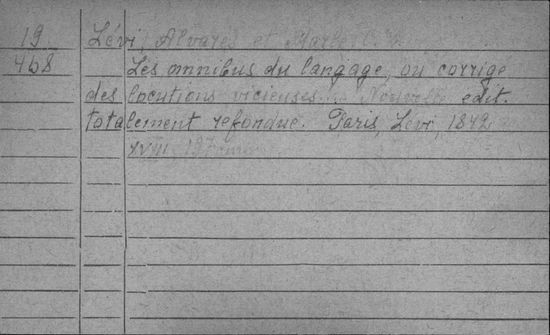 19
468
Lévi, Alvarès et Marle C. L.
Les omnibus du langage, ou corrigé
des locutions vicieuses... Nouvelle édit.
totalement refondue. Paris, Lévi, 1842
XVIII, 197